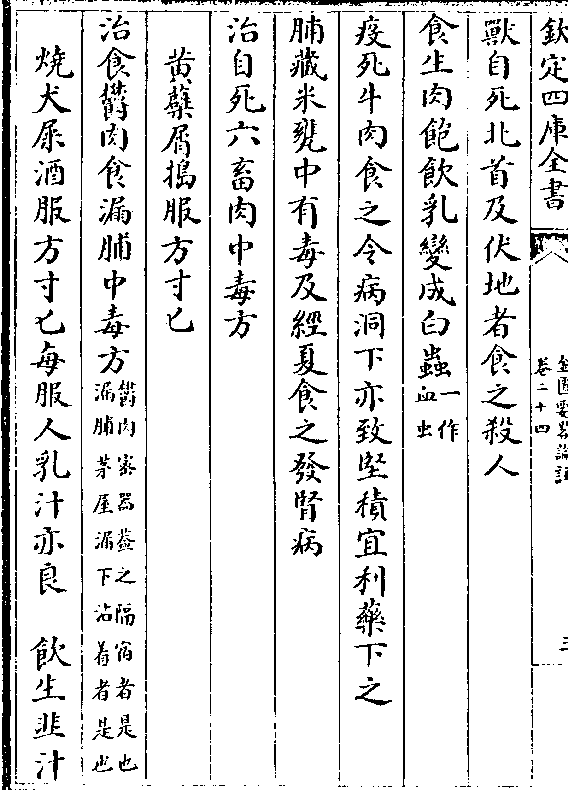 欽定四庫全書
金匱要畧論註
卷二十四
三
獸自死北首及伏地者食之殺人
食生肉飽飲乳變成白蟲一作血虫
疫死牛肉食之令病洞下亦致堅積宜利藥下之
脯藏米甕中有毒及經夏食之發腎病
治自死六畜肉中毒方
黄蘗屑搗服方寸匕
治食鬱肉食漏脯中毒方鬱肉宻器葢之隔宿者是也漏脯茅屋漏下沾着者是也
燒犬屎酒服方寸匕每服人乳汁亦良　飲生韭汁